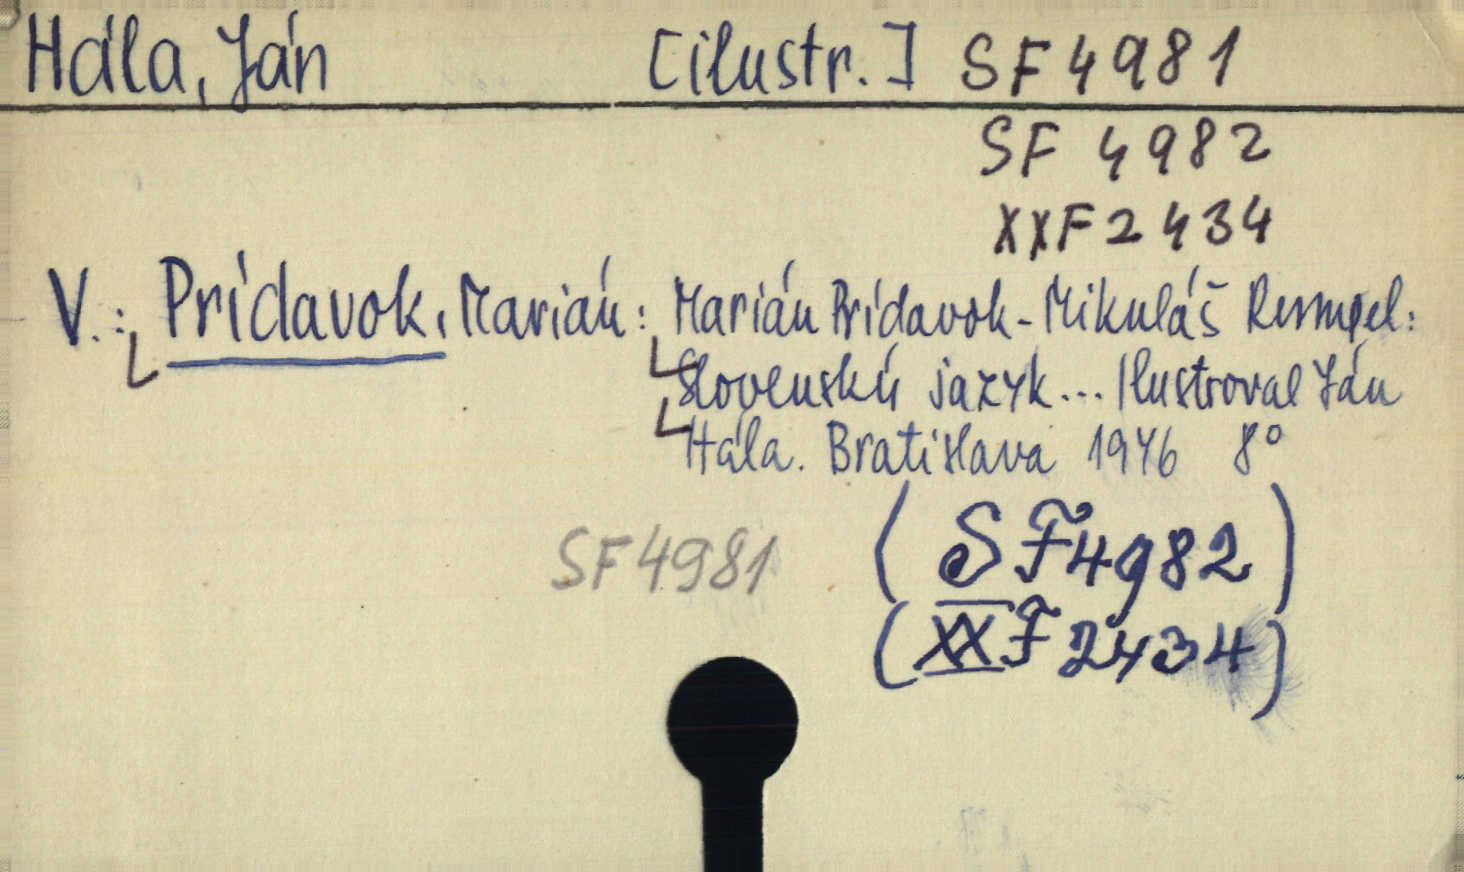 Hála, Ján [ilustr.] SF 4981
SF 4982
XXF 2434
V.: Prídavok, Marián: Marián Prídavok - Mikuláš
Slovenský jazyk... Ilustroval Ján
Hála. Bratislava 1946 8°
SF 4981 (SF 4982)
(XXF 2434)